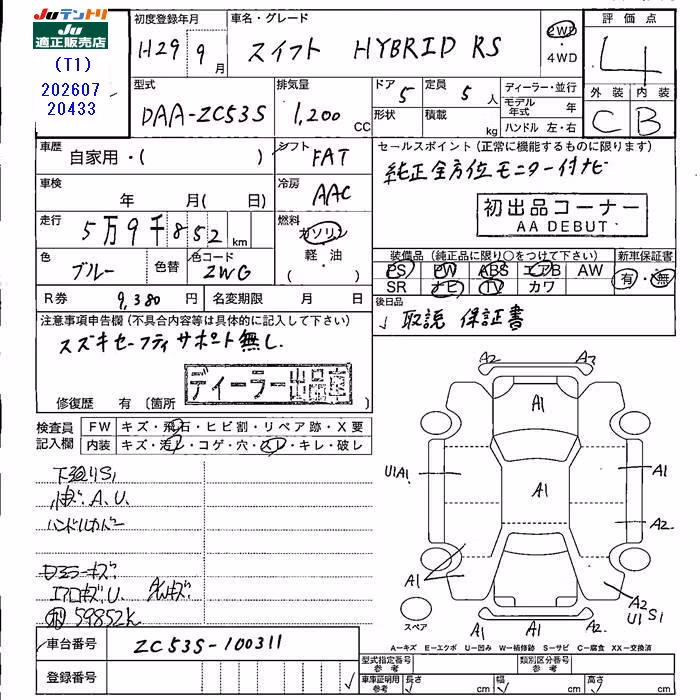 JUテントリ
JU適正販売店
(T1)
202607
20433
初度登録年月
H29 9月
車名・グレード
スイフト HYBRID RS
2WD
・
4WD
評価点
4
外装 内装
C B
型式
DAA-ZC53S
排気量
1,200 CC
ドア 5
形状
定員 5 人
積載 kg
ディーラー・並行
モデル年式 年
ハンドル 左・右
車歴
自家用・( )
シフト
FAT
セールスポイント (正常に機能するものに限ります)
純正全方位モニター付ナビ
初出品コーナー
AA DEBUT
車検
年 月( 日)
冷房
AAC
走行
5万9千852km
燃料
ガソリン
軽・油
( ・ )
色
ブルー
色替
色コード
ZWG
装備品 (純正品に限り○をつけて下さい)
PS PW ABS エアB AW
SR ナビ TV カワ
新車保証書
有・無
R券 9,380 円
名変期限 月 日
後日品
取説 保証書
注意事項申告欄 (不具合内容等は具体的に記入して下さい)
スズキセーフティサポート無し
ディーラー出品車
修復歴 有 〔箇所
検査員記入欄
FW キズ・飛石・ヒビ割・リペア跡・X要
内装 キズ・汚レ・コゲ・穴・スレ・キレ・破レ
下廻りS1
A、U
ハンドルカバー
ドアミラーキズ
エアロキズ、U
59852k
A2 A2
A1
U1A1
A1
A1
A2
A1
A2
U1 S1
A1 A1
スペア
A=キズ E=エクボ U=凹み W=補修跡 S=サビ C=腐食 XX=交換済
車台番号
ZC53S-100311
登録番号
型式指定番号 参考
類別区分番号 参考
車庫証明用 参考
長さ cm
幅 cm
高さ cm